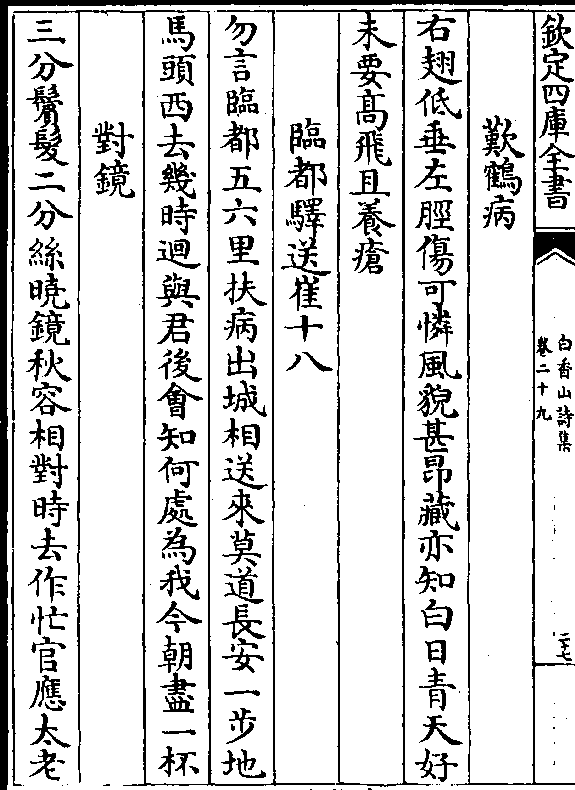 欽定四庫全書
白香山詩集
卷二十九
二十七
歎鶴病
右翅低垂左脛傷可憐風貌甚昂藏亦知白日青天好
未要高飛且養瘡
臨都驛送崔十八
勿言臨都五六里扶病出城相送來莫道長安一步地
馬頭西去幾時迴與君後會知何處為我今朝盡一杯
對鏡
三分鬢髮二分絲曉鏡秋容相對時去作忙官應太老